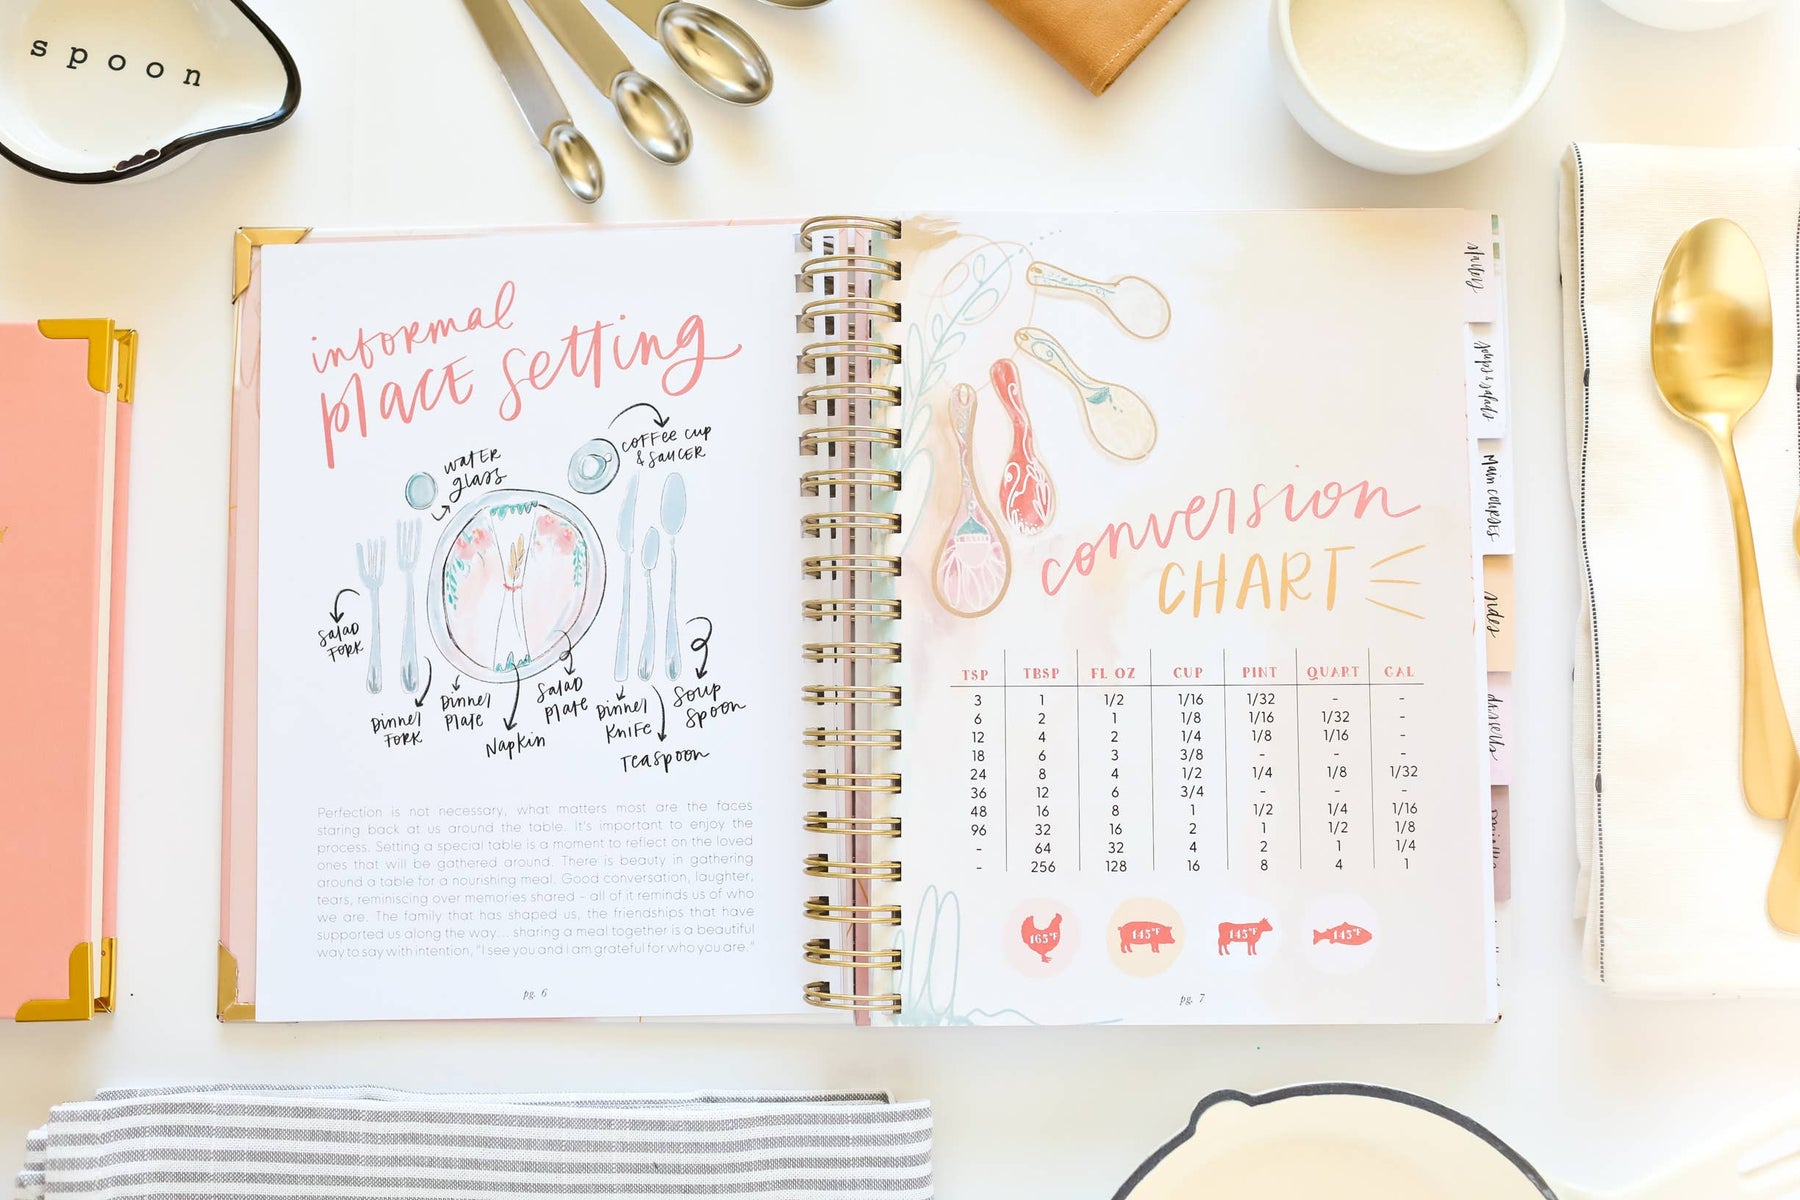 spoon
informal
place setting
water
glass
coffee cup
& saucer
salad
fork
Dinner
fork
Dinner
plate
Napkin
salad
plate
Dinner
knife
Teaspoon
soup
spoon
Perfection is not necessary, what matters most are the faces
staring back at us around the table. It's important to enjoy the
process. Setting a special table is a moment to reflect on the loved
ones that will be gathered around. There is beauty in gathering
around a table for a nourishing meal. Good conversation, laughter,
tears, reminiscing over memories shared - all of it reminds us of who
we are. The family that has shaped us, the friendships that have
supported us along the way... sharing a meal together is a beautiful
way to say with intention, "I see you and i am grateful for who you are."
pg. 6
conversion
CHART
TSP TBSP FL OZ CUP PINT QUART GAL
3 1 1/2 1/16 1/32 - -
6 2 1 1/8 1/16 1/32 -
12 4 2 1/4 1/8 1/16 -
18 6 3 3/8 - - -
24 8 4 1/2 1/4 1/8 1/32
36 12 6 3/4 - - -
48 16 8 1 1/2 1/4 1/16
96 32 16 2 1 1/2 1/8
- 64 32 4 2 1 1/4
- 256 128 16 8 4 1
165°F 145°F 145°F 145°F
pg. 7
soups & salads
main courses
sides
desserts